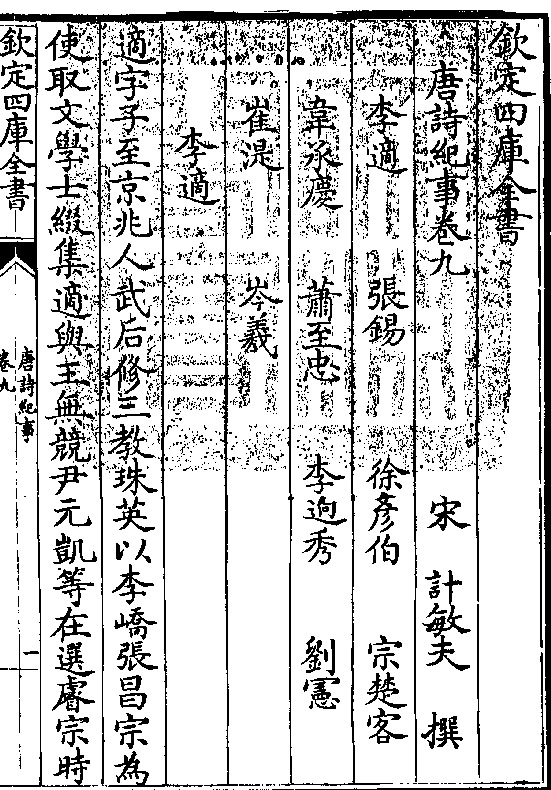 欽定四庫全書
唐詩紀事卷九
宋 計敏夫 撰
李適 張錫 徐彥伯 宗楚客
韋承慶 蕭至忠 李逈秀 劉憲
崔湜 岑羲
李適
適字子至京兆人武后修三教珠英以李嶠張昌宗為
使取文學士綴集適與王無競尹元凱等在選睿宗時
欽定四庫全書
唐詩紀事
卷九
一